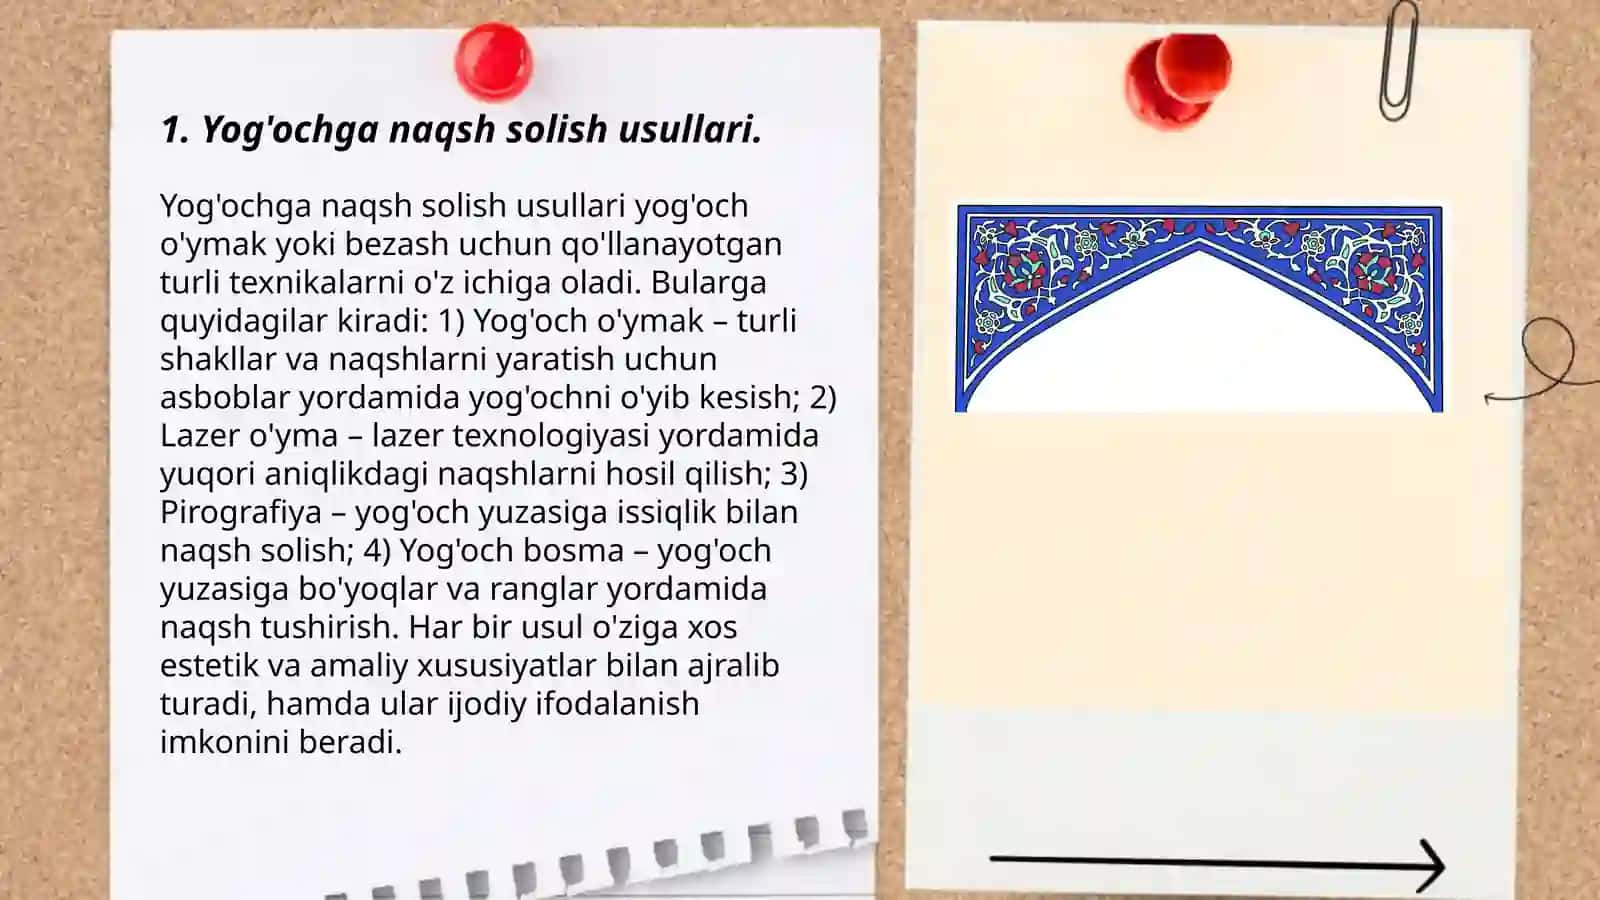 1. Yog'ochga naqsh solish usullari.
Yog'ochga naqsh solish usullari yog'och
o'ymak yoki bezash uchun qo'llanayotgan
turli texnikalarni o'z ichiga oladi. Bularga
quyidagilar kiradi: 1) Yog'och o'ymak – turli
shakllar va naqshlarni yaratish uchun
asboblar yordamida yog'ochni o'yib kesish; 2)
Lazer o'yma – lazer texnologiyasi yordamida
yuqori aniqlikdagi naqshlarni hosil qilish; 3)
Pirografiya – yog'och yuzasiga issiqlik bilan
naqsh solish; 4) Yog'och bosma – yog'och
yuzasiga bo'yoqlar va ranglar yordamida
naqsh tushirish. Har bir usul o'ziga xos
estetik va amaliy xususiyatlar bilan ajralib
turadi, hamda ular ijodiy ifodalanish
imkonini beradi.